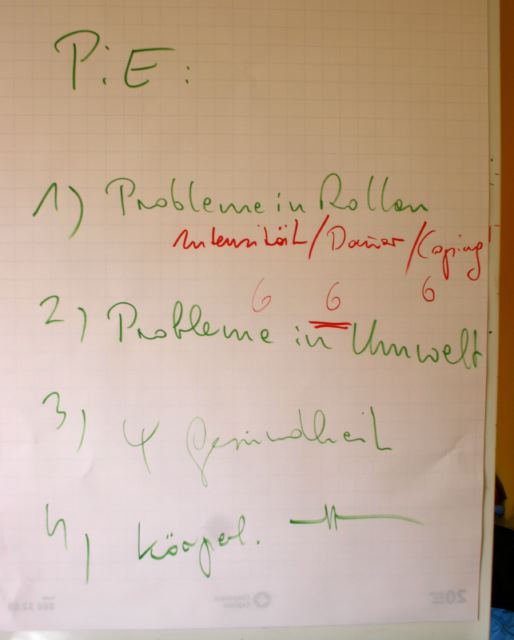 P.i.E:
1) Probleme in Rollen
Intensität/Dauer/Coping
6 6 6
2) Probleme in Umwelt
3) ψ Gesundheit
4) körperl.